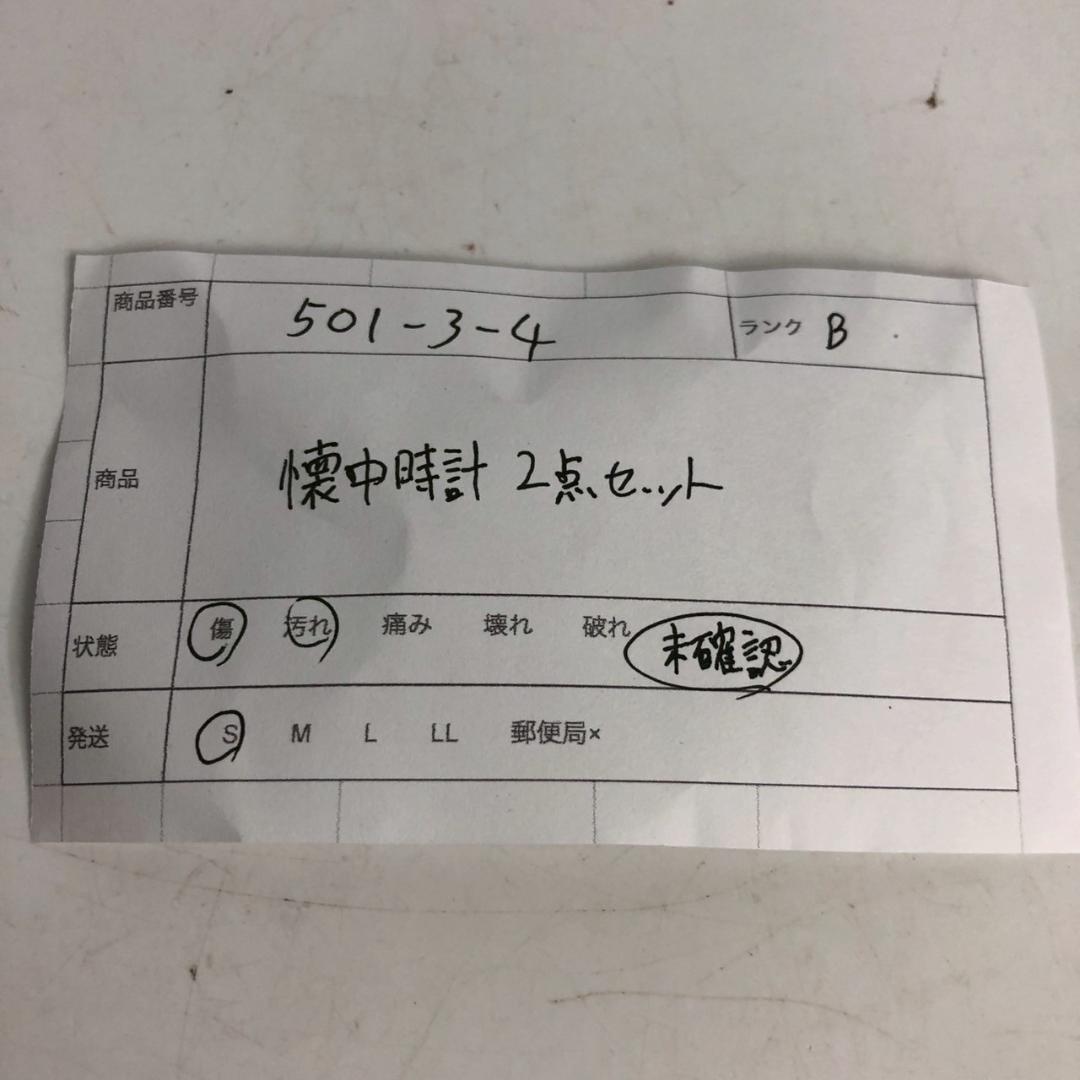 商品番号 501-3-4 ランク B
商品 懐中時計 2点セット
状態 傷 汚れ 痛み 壊れ 破れ 未確認
発送 S M L LL 郵便局×